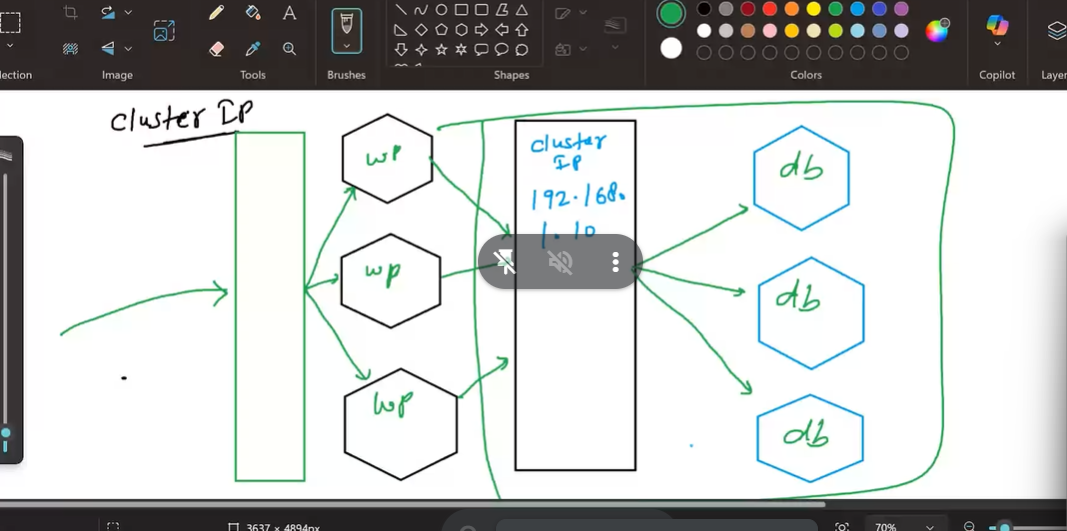 lection
Image
Tools
Brushes
Shapes
Colors
Copilot
Layer
A
cluster IP
wp
wp
wp
cluster
IP
192.168.
1.10
db
db
db
3637 × 4894px
70%